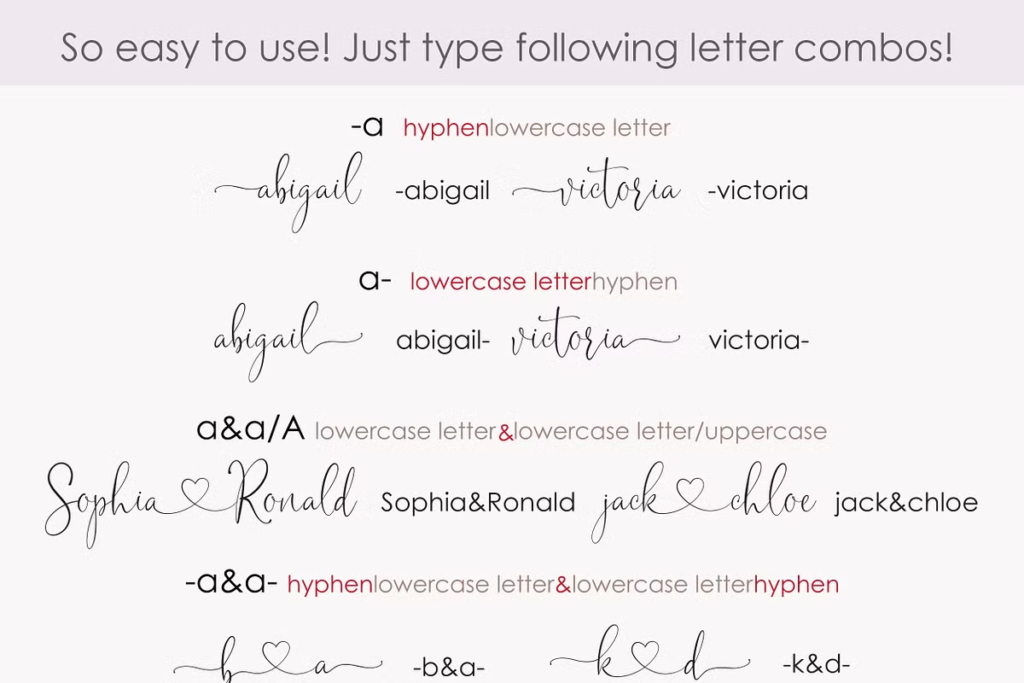 So easy to use! Just type following letter combos!
-a hyphenlowercase letter
abigail -abigail victoria -victoria
a- lowercase letterhyphen
abigail abigail- victoria victoria-
a&a/A lowercase letter&lowercase letter/uppercase
Sophia Ronald Sophia&Ronald jack chloe jack&chloe
-a&a- hyphenlowercase letter&lowercase letterhyphen
b a -b&a- k d -k&d-